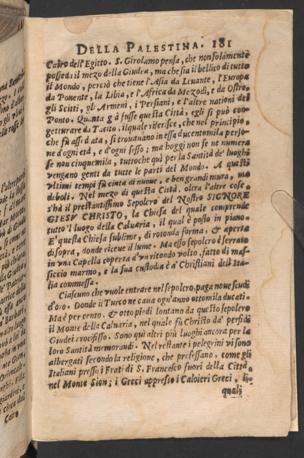 DELLA PALESTINA. 181
Cairo dell'Egitto. S. Girolamo pensa, che non solamente
posseda il mezo della Giudea, ma che sia il bellico di tutto
il Mondo, perciò che tiene l'Asia da Levante, l'Europa
da Ponente, la Libia, e l'Africa da Mezodì, e da Ostro,
gli Scitti, gli Armeni, i Persiani, e l'altre nationi del
Ponto. Quanta g à fusse questa Città, egli si può con-
getturare da Tacito, il quale riferisce, che nel principio,
che fù assediata, si trouauano in essa ducentomila perso-
ne d'ogni età, e d'ogni sesso; ma hoggi non se ne numera
se non cinquemila, tutto che quà per la Santità de' luoghi
vengano genti da tutte le parti del Mondo. A questi
vltimi tempi fù cinta di mure, e ben grandi mura, ma
deboli. Nel mezo di questa Città, oltra l'altre cose
s'hà il prestantissimo Sepolcro del Nostro SIGNORE
GIESV CHRISTO, la Chiesa del quale comprende
tutto 'l luogo della Caluaria, il qual è posto in piano.
E' questa Chiesa sublime, di rotonda forma, & aperta
di sopra, donde riceue il lume. Ma esso sepolcro è serrato
in vna Capella coperta d'vn ritondo volto, fatto di mas-
siccio marmo, e la sua custodia è à Christiani dell'Ita-
lia commessa.
Ciascuno che vuole entrare nel sepolcro, paga noue scudi
d'oro. Donde il Turco ne caua ogn'anno ottomila ducati.
Ma è per cento, & otto piedi lontano da questo sepolcro
il Monte della Caluaria, nel quale fù Christo da' perfidi
Giudei crocifisso. Sono quì altri più luoghi ancora per la
loro Santità memorandi. Nel restante i pelegrini vi sono
albergati secondo la religione, che professano, come gli
Italiani presso i Frati di S. Francesco fuori della Città,
nel Monte Sion; i Greci appresso i Caloieri Greci, li
quali